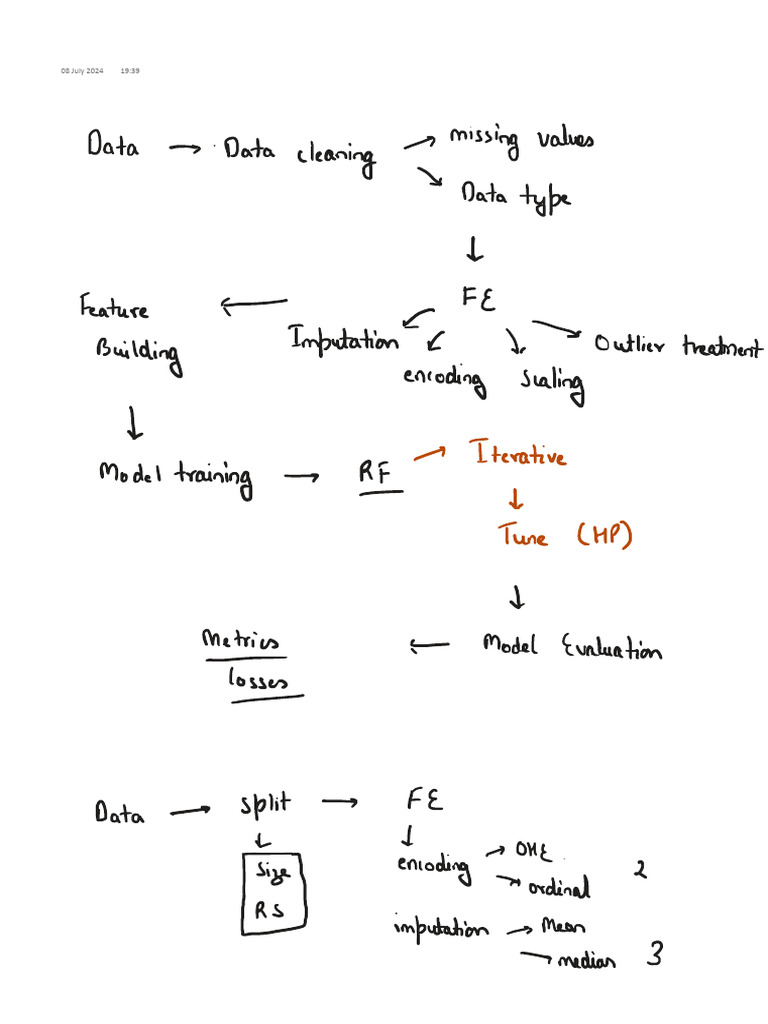 08 July 2024 19:39
Data → Data cleaning → missing values
→ Data type
↓
FE
Feature Building ← Imputation encoding scaling Outlier treatment
↓
Model training → RF → Iterative
↓
Tune (HP)
↓
Metrics ← Model Evaluation
losses
Data → split → FE
↓ ↓
Size encoding → OHE 2
RS → ordinal
imputation → Mean
→ median 3